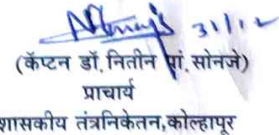 31/12
(कॅप्टन डॉ. नितीन पां. सोनजे)
प्राचार्य
शासकीय तंत्रनिकेतन,कोल्हापूर